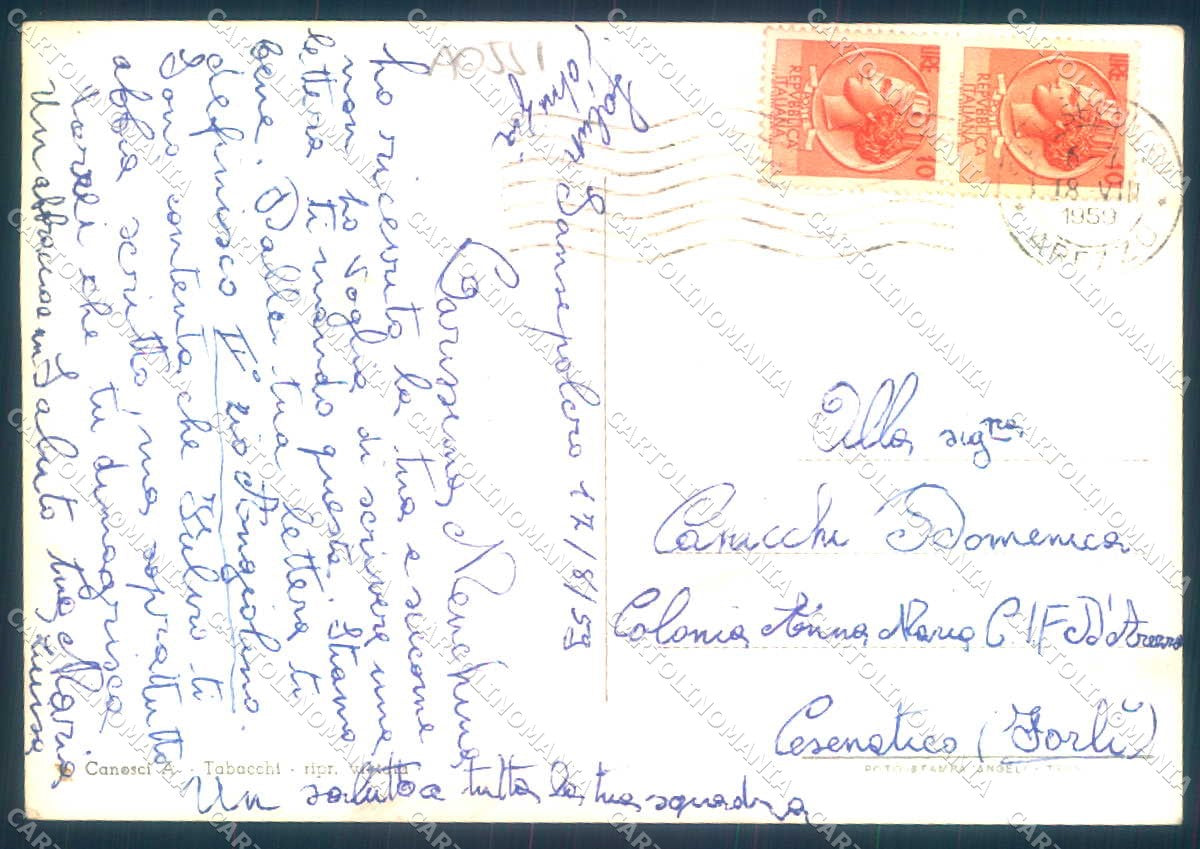 Sansepolcro 17/8/59
Carissima Menchina
ho ricevuto la tua e siccome
non ho voglia di scrivere una
lettera ti mando questa. Stiamo
bene. Dalla tua lettera ti
definisco II° zio Angiolino.
Sono contenta che Silvio ti
abbia scritto ma sopratutto
vorrei che tu dimagrisca
Un abbraccio un saluto tua Maria
Luisa
Un saluto a tutta la tua squadra
Saluti
A0551
LIRE 10
REPVBBLICA ITALIANA
POSTE
LIRE 10
REPVBBLICA ITALIANA
18 VIII
1959
AREZZO
Alla sig.ra
Canicchi Domenica
Colonia Anna Maria CIF D'Arezzo
Cesenatico (Forlì)
Canosci A. - Tabacchi - ripr. vietata
FOTO STAMPA ANGELI
CARTOLINOMANIA